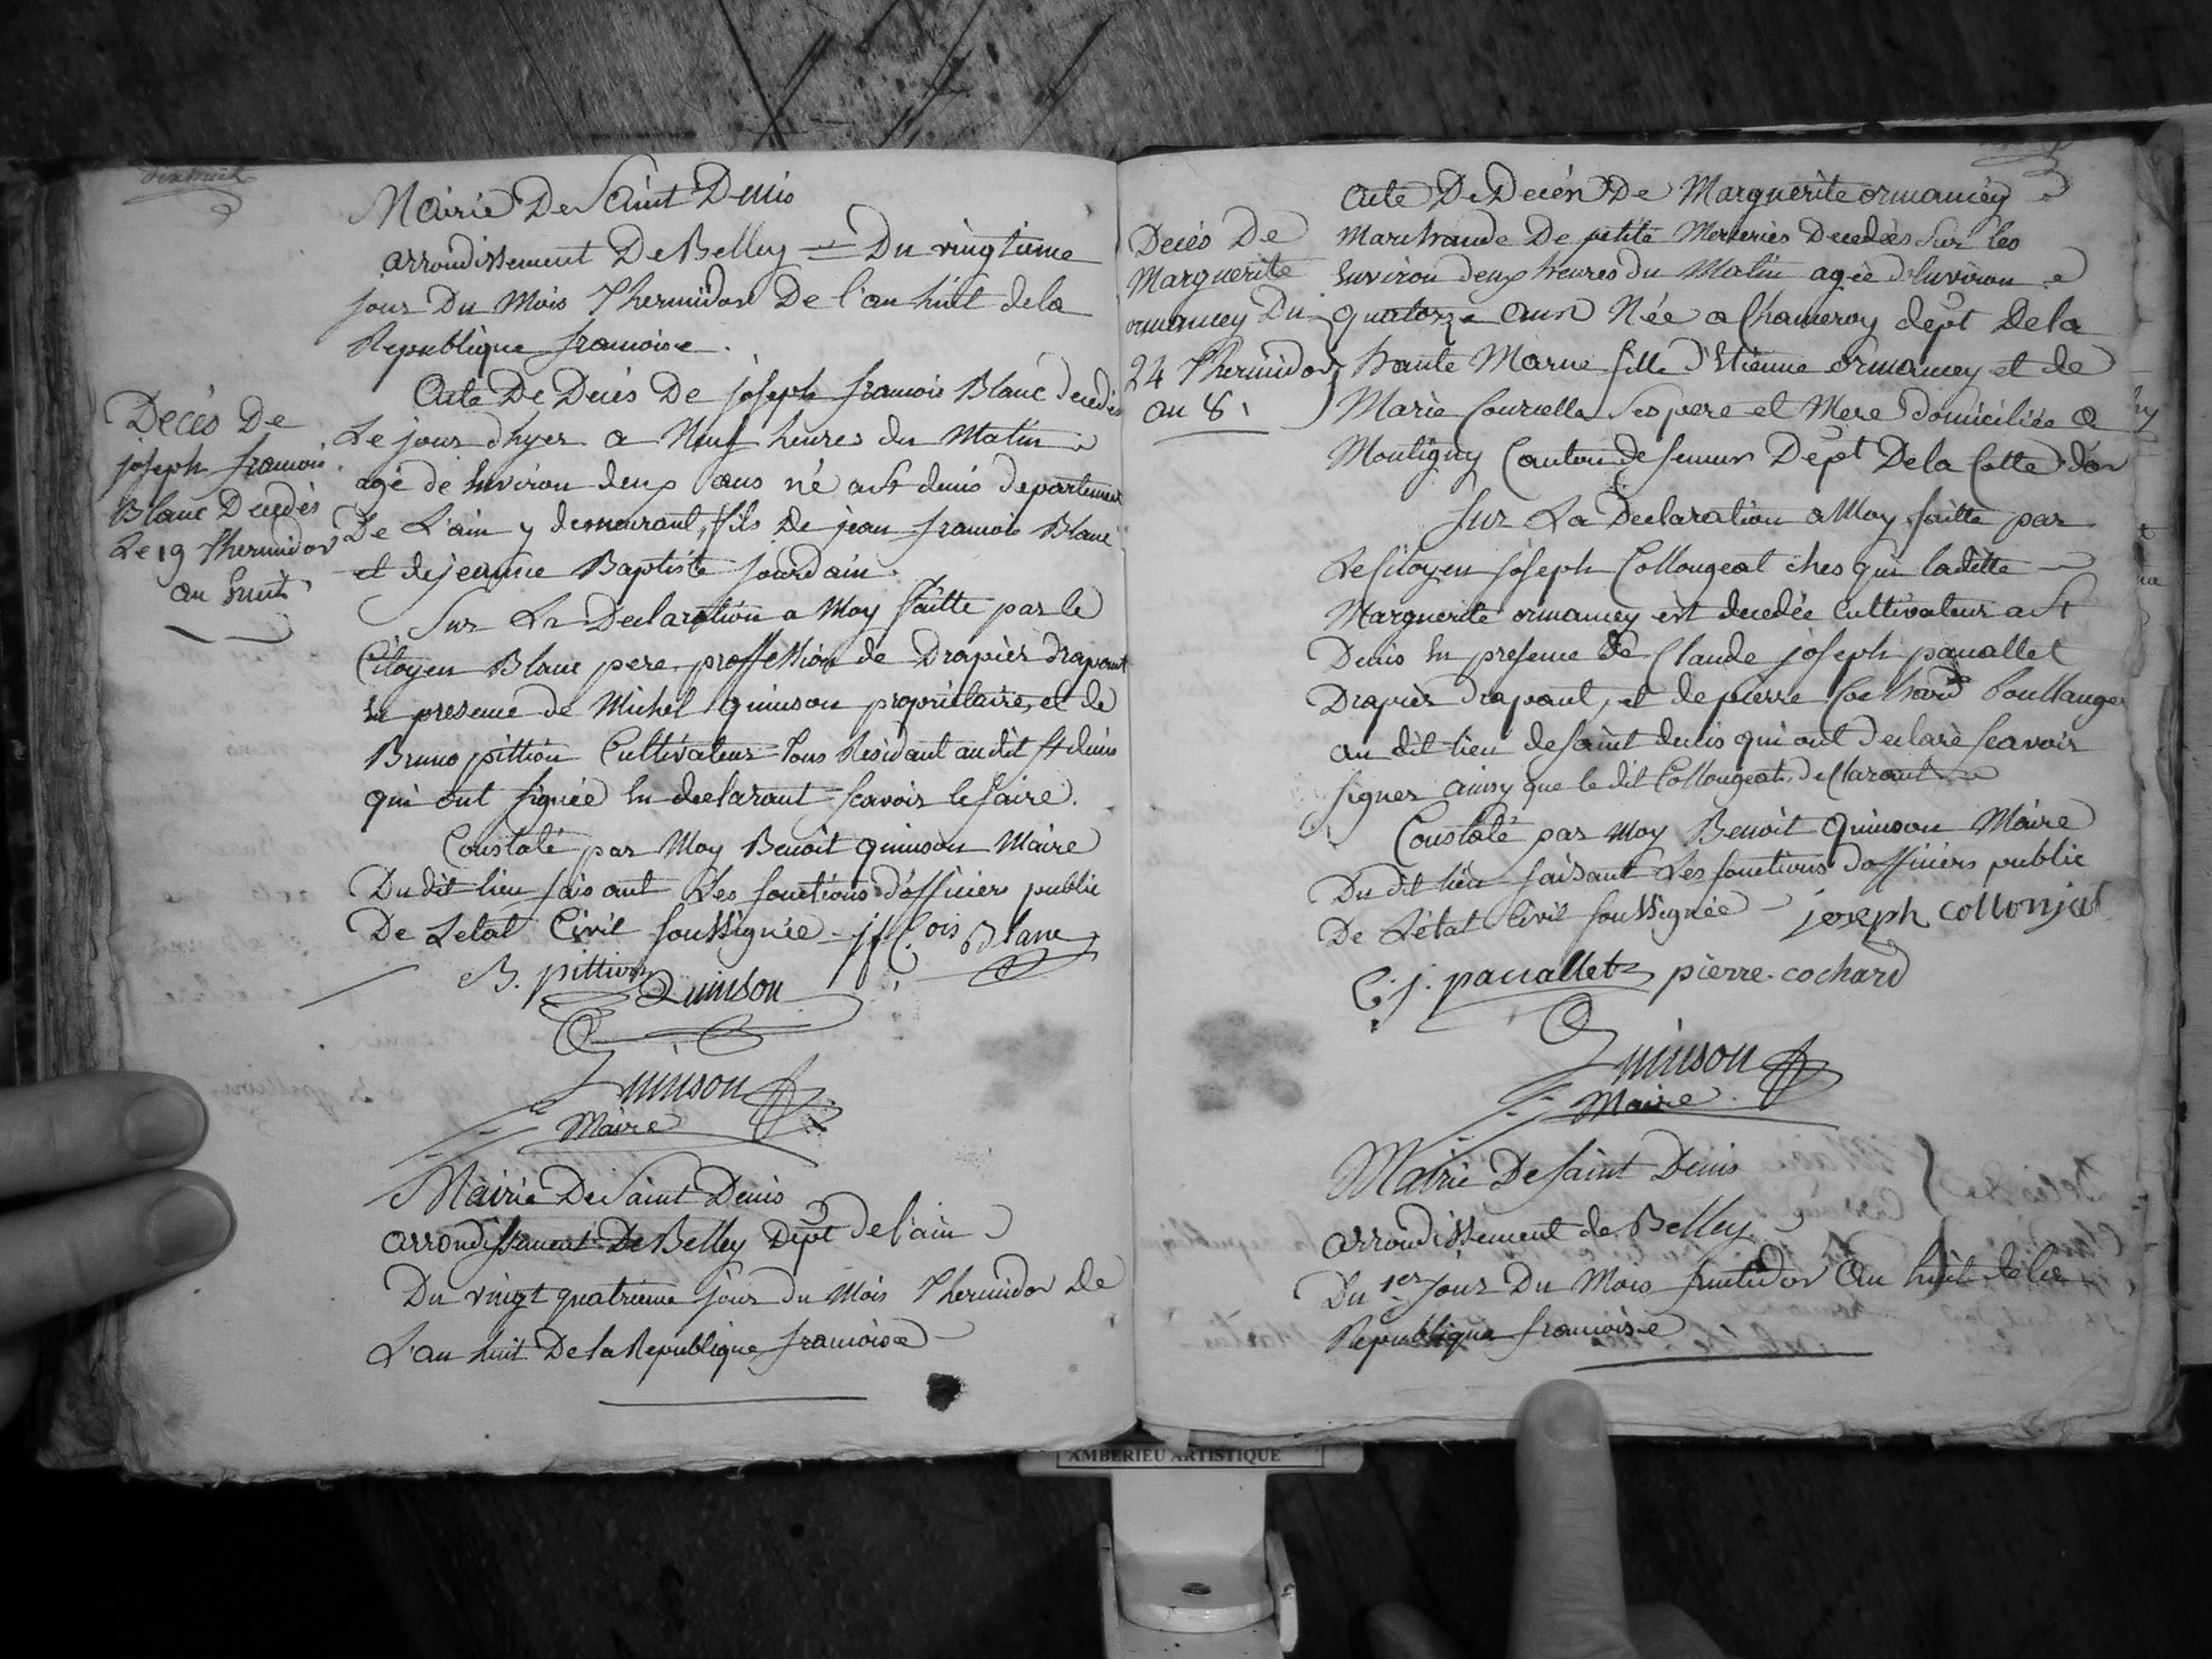 Mairie De Saint Denis
arrondissement De Belley = Du vingtieme
jour Du Mois Thermidor De l'an huit dela
Republique francoise.
Decès De
joseph francois
Blanc Decedés
Le 19 Thermidor
an huit
Acte De Decés De joseph francois Blanc decedés
Le jour d'hyer a Neuf heures du Matin
agé de Environ deux ans né a St denis departement
De L'ain y demeurant, fils de jean francois Blanc
et de jeanne Baptiste jourdain.
Sur La Declaration a Moy faitte par le
Citoyen Blanc pere, proffession de Drapier drapant
En presence de Michel quinson propriétaire, et de
Bruno pittion Cultivateur tous Residant audit St denis
qui ont signée En declarant scavoir le faire.
Constaté par Moy Benoit quinson Maire
Du dit lieu faisant Les fonctions d'officier public
De Letat Civil soussignée - jf cois Blanc
B. pittion Quinson
Quinson
Maire
Mairie De Saint Denis
arrondissement De Belley Dept de l'ain
Du vingt quatrieme jour du Mois Thermidor de
L'an huit De la Republique francoise
Decés De
Marguerite
ormancey Du
24 Thermidor
an 8
Acte De Decés De Marguerite ormancey
Marchande De petite Merceries Decedées sur les
Environ deux heures du Matin agée d'Environ
quatorze ans Née a Chameroy dept Dela
haute Marne fille d'Etienne ormancey et de
Marie Courcelle Ses pere et Mere domiciliée a
Montigny Canton de semur Dept De la Cotte d'or
Sur La Declaration a Moy faitte par
Le Citoyen joseph Collongeat ches qui la ditte
Marguerite ormancey est decedée Cultivateur a St
Denis En presence de Claude joseph pacallet
Drapier drapant, et de pierre Cochard boullanger
au dit lieu de saint denis qui ont declaré scavoir
signer ainsy que le dit Collongeat, declarant
Constaté par Moy Benoit Quinson Maire
Du dit lieu faisant Les fonctions d'officiers public
De L'état Civil soussignée - joseph collonjat
C. j. pacallet pierre cochard
Quinson
Maire
Mairie De saint Denis
arrondissement de Belley
Du 1er jour Du Mois fructidor an huit de la
Republique francoise
AMBERIEU ARTISTIQUE